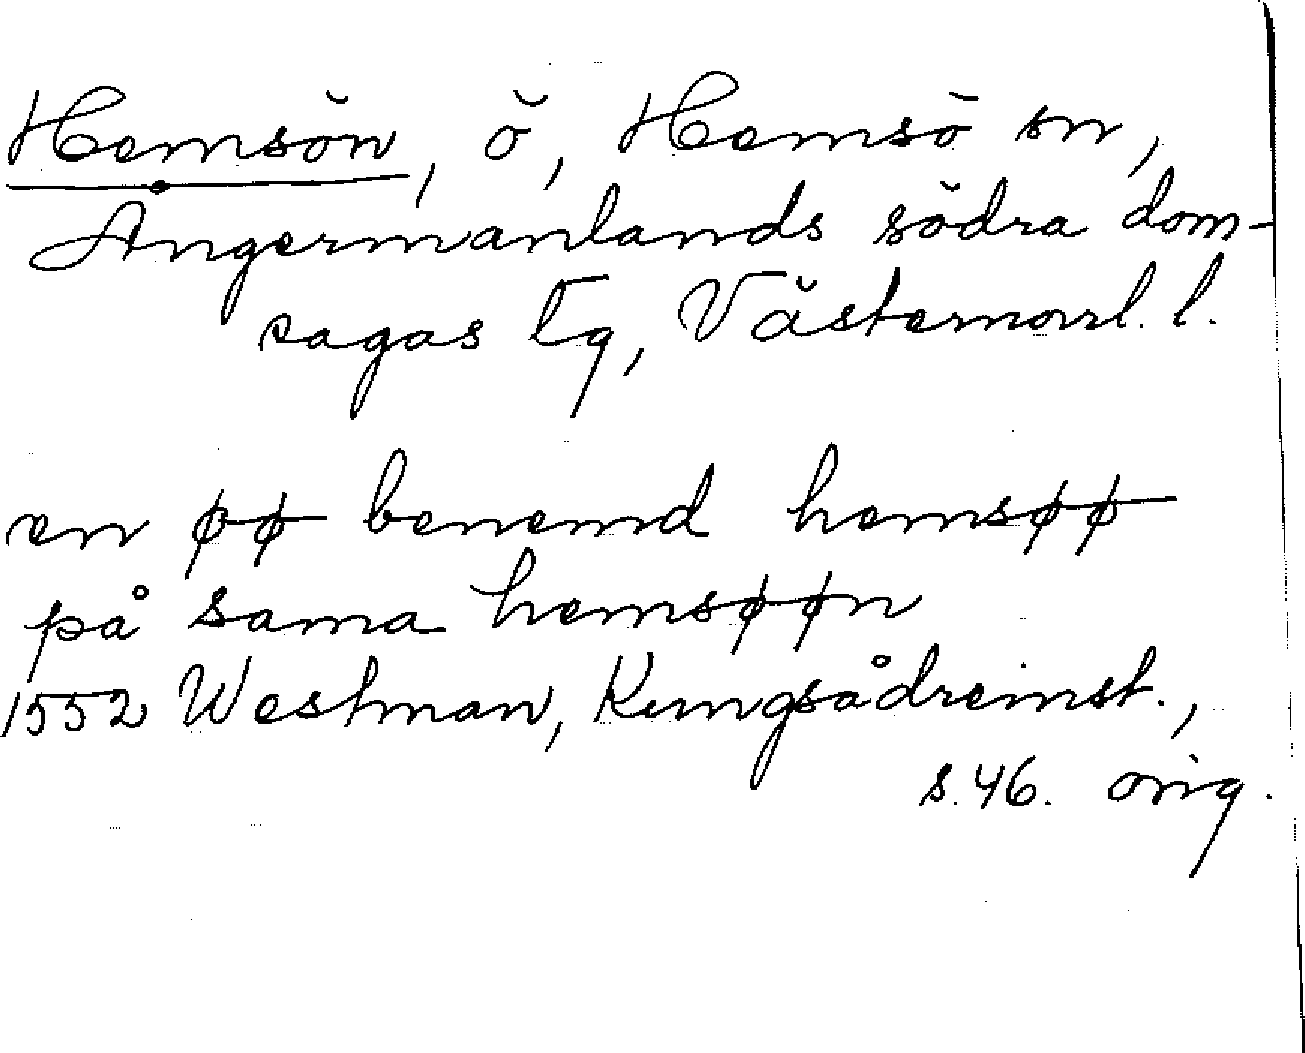 Hemsön, ö, Hemsö sn,
Ångermanlands södra dom-
sagas tg, Västernorrl. l.
en øø benemd hemsøø
på sama hemsøøn
1552 Westman, Kungsådreinst.,
s. 46. orig.